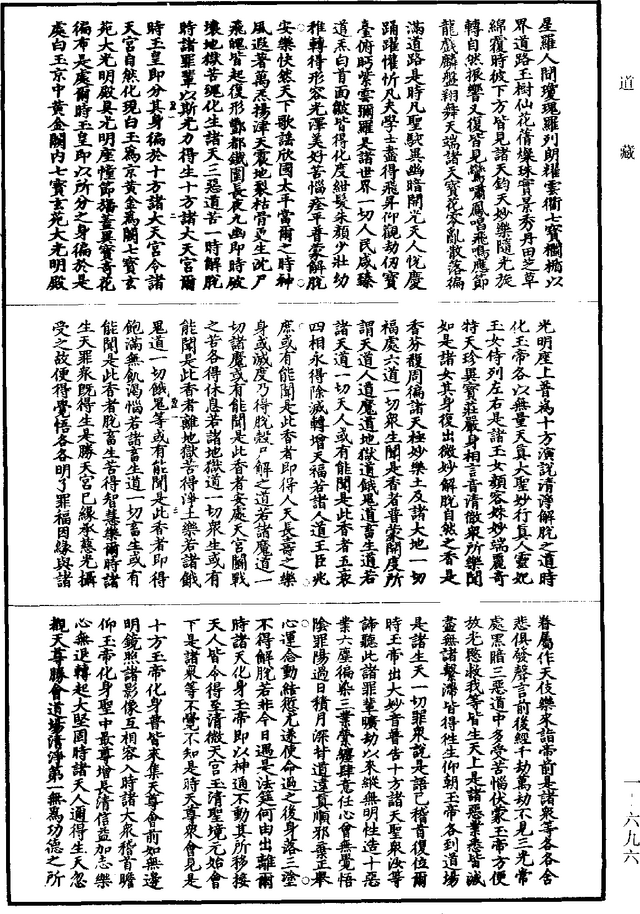 道藏
星羅人間瓊瑰羅列朗耀雲衢七寶欄楯以
界道路玉樹仙花蒨燦珠實景秀丹田芝草
綿覆時彼下方皆見諸天鈞天妙樂隨光旋
轉自然振響又復皆見鸞嘯鳳唱飛鳴應節
龍戲麟盤翔舞天端諸天寶花零亂散落徧
滿道路是時凡聖髣髴異幽暗開光天人悅慶
踊躍懽忻凡夫學士盡得飛昇仰觀劫仞寶
臺俯眄紫雲彌羅是諸世界一切人民咸臻
道炁白首面皺皆得化度紺髮朱顏少壯幼
稚轉得形容光澤美好苦惱痊平普蒙解脫
安樂快然天下歌謠欣國太平當爾之時神
風遐著萬炁揚津天震地裂枯骨更生沈尸
飛魄皆起復形酆都鐵圍長夜九幽即時破
壞地獄苦魂化生諸天三惡道苦一時解脫
時諸罪輩以斯光力得生十方諸大天宮爾
時玉皇即分其身徧於十方諸大天宮令諸
天宮自然化現白玉為京黃金為闕七寶玄
苑大光明殿具光明座幢節旛蓋異寶奇花
徧布是處爾時玉皇即以所分之身徧於是
處白玉京中黃金闕內七寶玄苑大光明殿
光明座上普為十方演說清淨解脫之道時
化玉帝各以無量天真大聖妙行真人靈妃
玉女侍列左右是諸玉女顏容姝妙端麗奇
特天珍異寶莊嚴身相言音清徹眾所樂聞
如是諸女其身復出微妙解脫自然之香是
香芬馥周徧諸天極妙樂土及諸大地一切
福處六道一切眾生聞是香者普蒙開度所
謂天道人道魔道地獄道餓鬼道畜生道若
諸天道一切天人或有能聞是此香者五衰
四相永得除滅轉增天福若諸人道王臣兆
庶或有能聞是此香者即得人天長壽之樂
身或滅度乃得脫殼尸解之道若諸魔道一
切諸魔或有能聞是此香者安處天宮鬭戰
之苦各得休息若諸地獄道一切眾生或有
能聞是此香者離地獄苦得淨土樂若諸餓
鬼道一切餓鬼等或有能聞是此香者即得
飽滿無飢渴惱若諸畜生道一切畜生或有
能聞是此香者脫畜生苦得智慧樂爾時諸
生天罪眾既得生是勝天宮已緣承慈光攝
受之故便得覺悟各各明了罪福因緣與諸
眷屬作天伎樂來詣帝前是諸眾等各各含
悲俱發聲言前後經千劫萬劫不見三光常
處黑暗三惡道中多受苦惱伏蒙玉帝方便
放光愍救我等皆生天上是諸惡業悉皆滅
盡無諸繫滯皆得徃生仰朝玉帝各到道場
是諸生天一切罪眾說是語已稽首復位爾
時玉帝出大妙音普告十方諸天聖眾汝等
諦聽此諸罪輩曠劫以來縱無明性造十惡
業六塵徧染三業縈纏肆意任心曾無覺悟
陰罪陽過日積月深甘道違真順邪棄正舉
心運念動結愆尤遂使命過之後身落三塗
不得解脫若非今日遇是法筵何由出離爾
時諸天化身玉帝即以神通不動其所移接
天人皆令得至清微天宮玉清聖境元始會
下是諸眾等不覺不知是時天尊眾會見是
十方玉帝化身普皆來集天尊會前如無邊
明鏡照諸影像互相容入時諸大眾稽首瞻
仰玉帝化身聖中最尊增長清信益加志樂
心無退轉起大堅固時諸天人適得生天忽
觀天尊勝會道場清淨第一無為功德之所
一-六九六